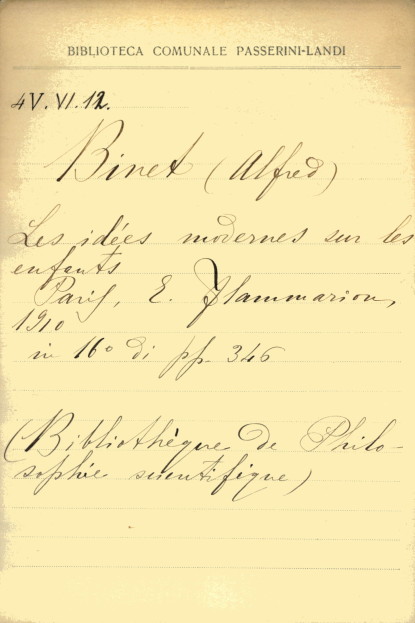 BIBLIOTECA COMUNALE PASSERINI-LANDI
4V.VI.12.
Binet (Alfred)
Les idées modernes sur les
enfants
Paris, E. Flammarion,
1910
in 16° di pp. 346
(Bibliothèque de Philo-
sophie scientifique)